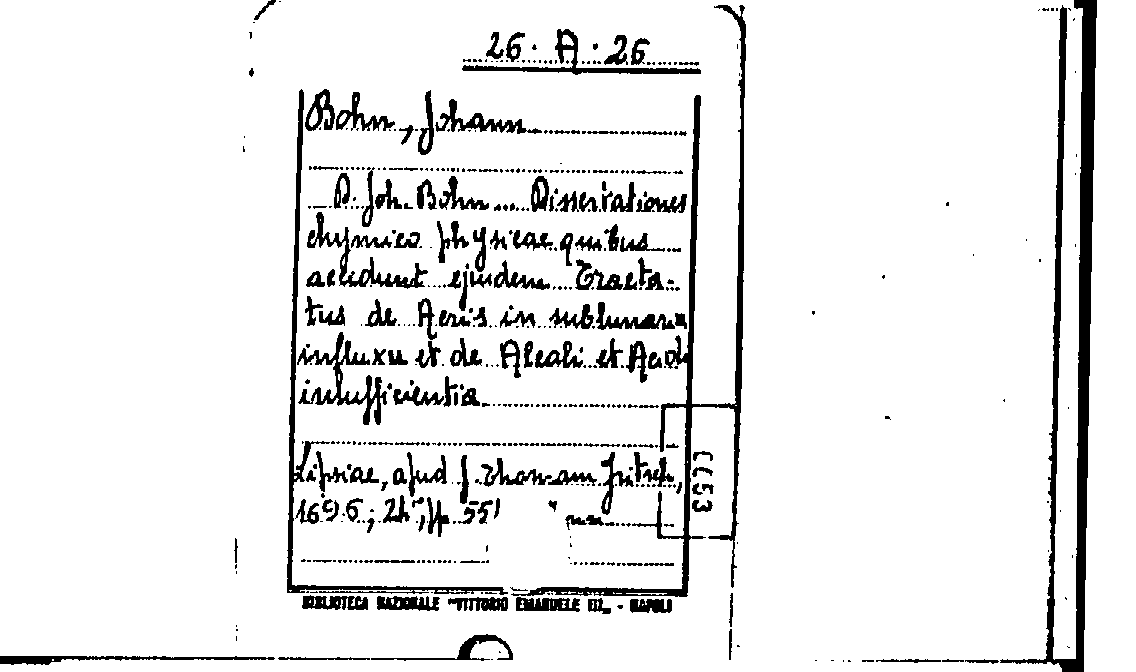 26. A. 26
Bohn, Johann
D. Joh. Bohn... Dissertationes
chymico physicae quibus
accedunt ejusdem Tracta-
tus de Aeris in sublunaria
influxu et de Alcali et Acidi
insufficientia
Lipsiae, apud J. Thomam Fritsch,
1696; 24°, pp. 551
BIBLIOTECA NAZIONALE "VITTORIO EMANUELE III" - NAPOLI